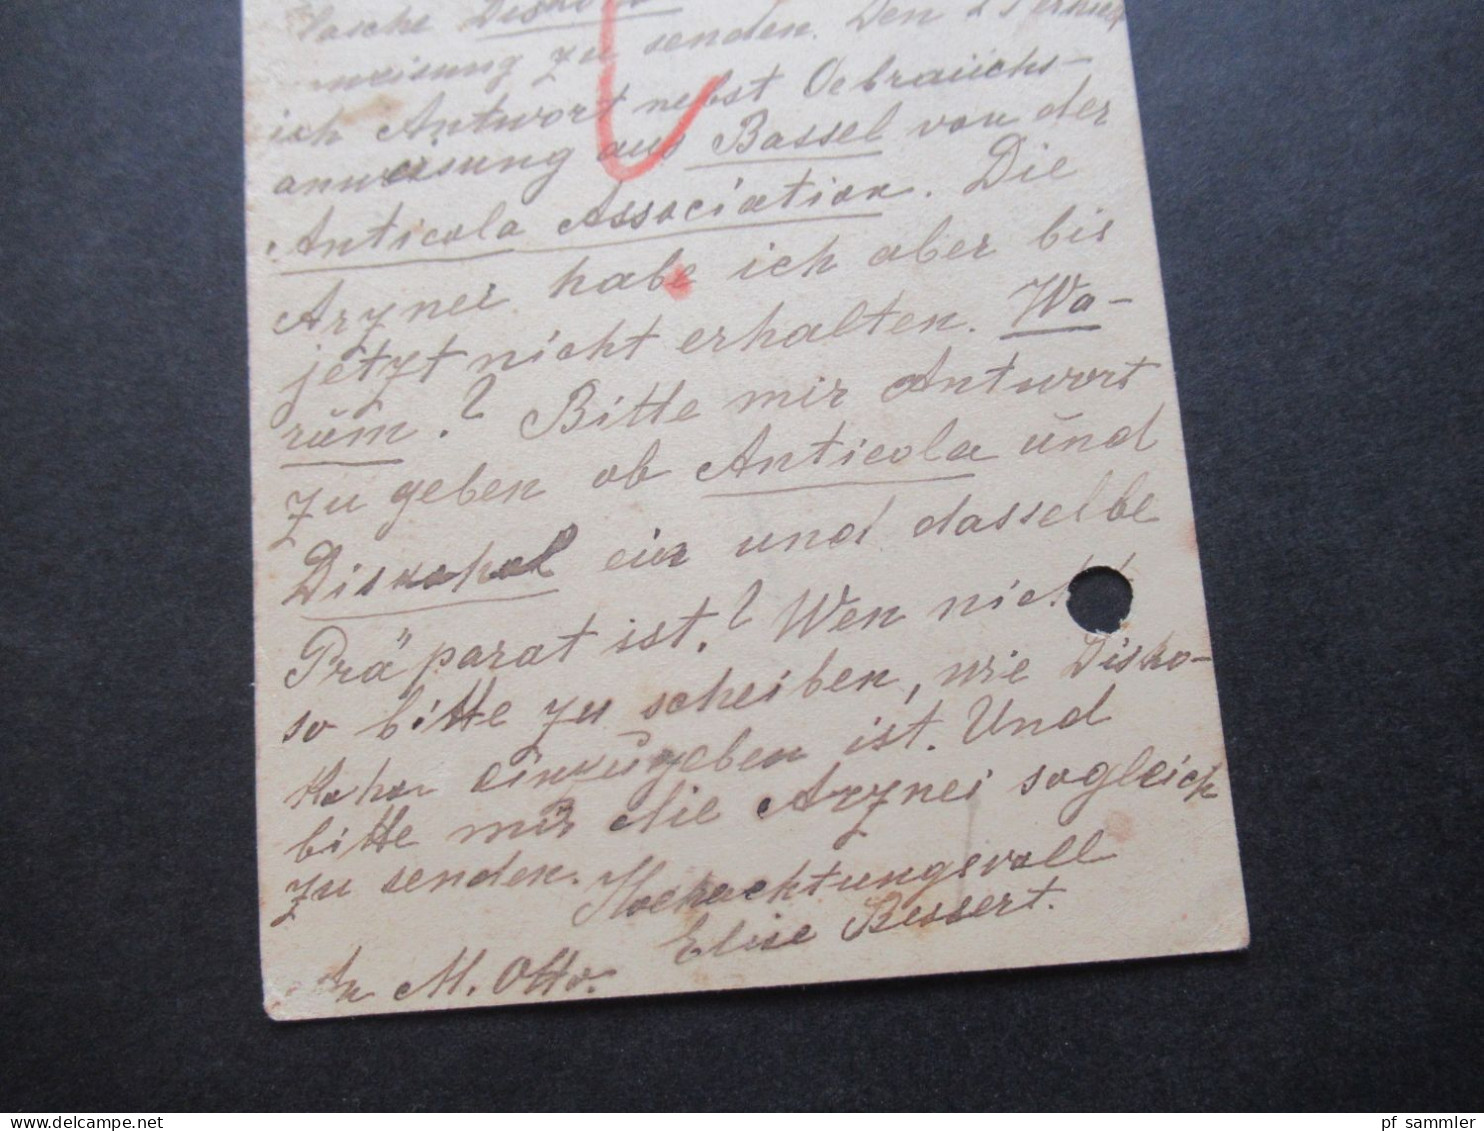 Flasche Diskohol
weisung zu senden. Den 2 erhielt
ich Antwort nebst Gebraüchs-
anweisung aus Bassel von der
Anticola Association. Die
Arznei habe ich aber bis
jetzt nicht erhalten. Wa-
rŭm.? Bitte mir Antwort
zu geben ob Anticola ŭnd
Diskohol ein und dasselbe
Präparat ist.? Wen nicht
so bitte zu scheiben, wie Disko-
hohn einzŭgeben ist. Und
bitte mir die Arznei sogleich
zu senden. Hochachtungsvoll
Elise Bessert.
An M. Otto.
pf sammler